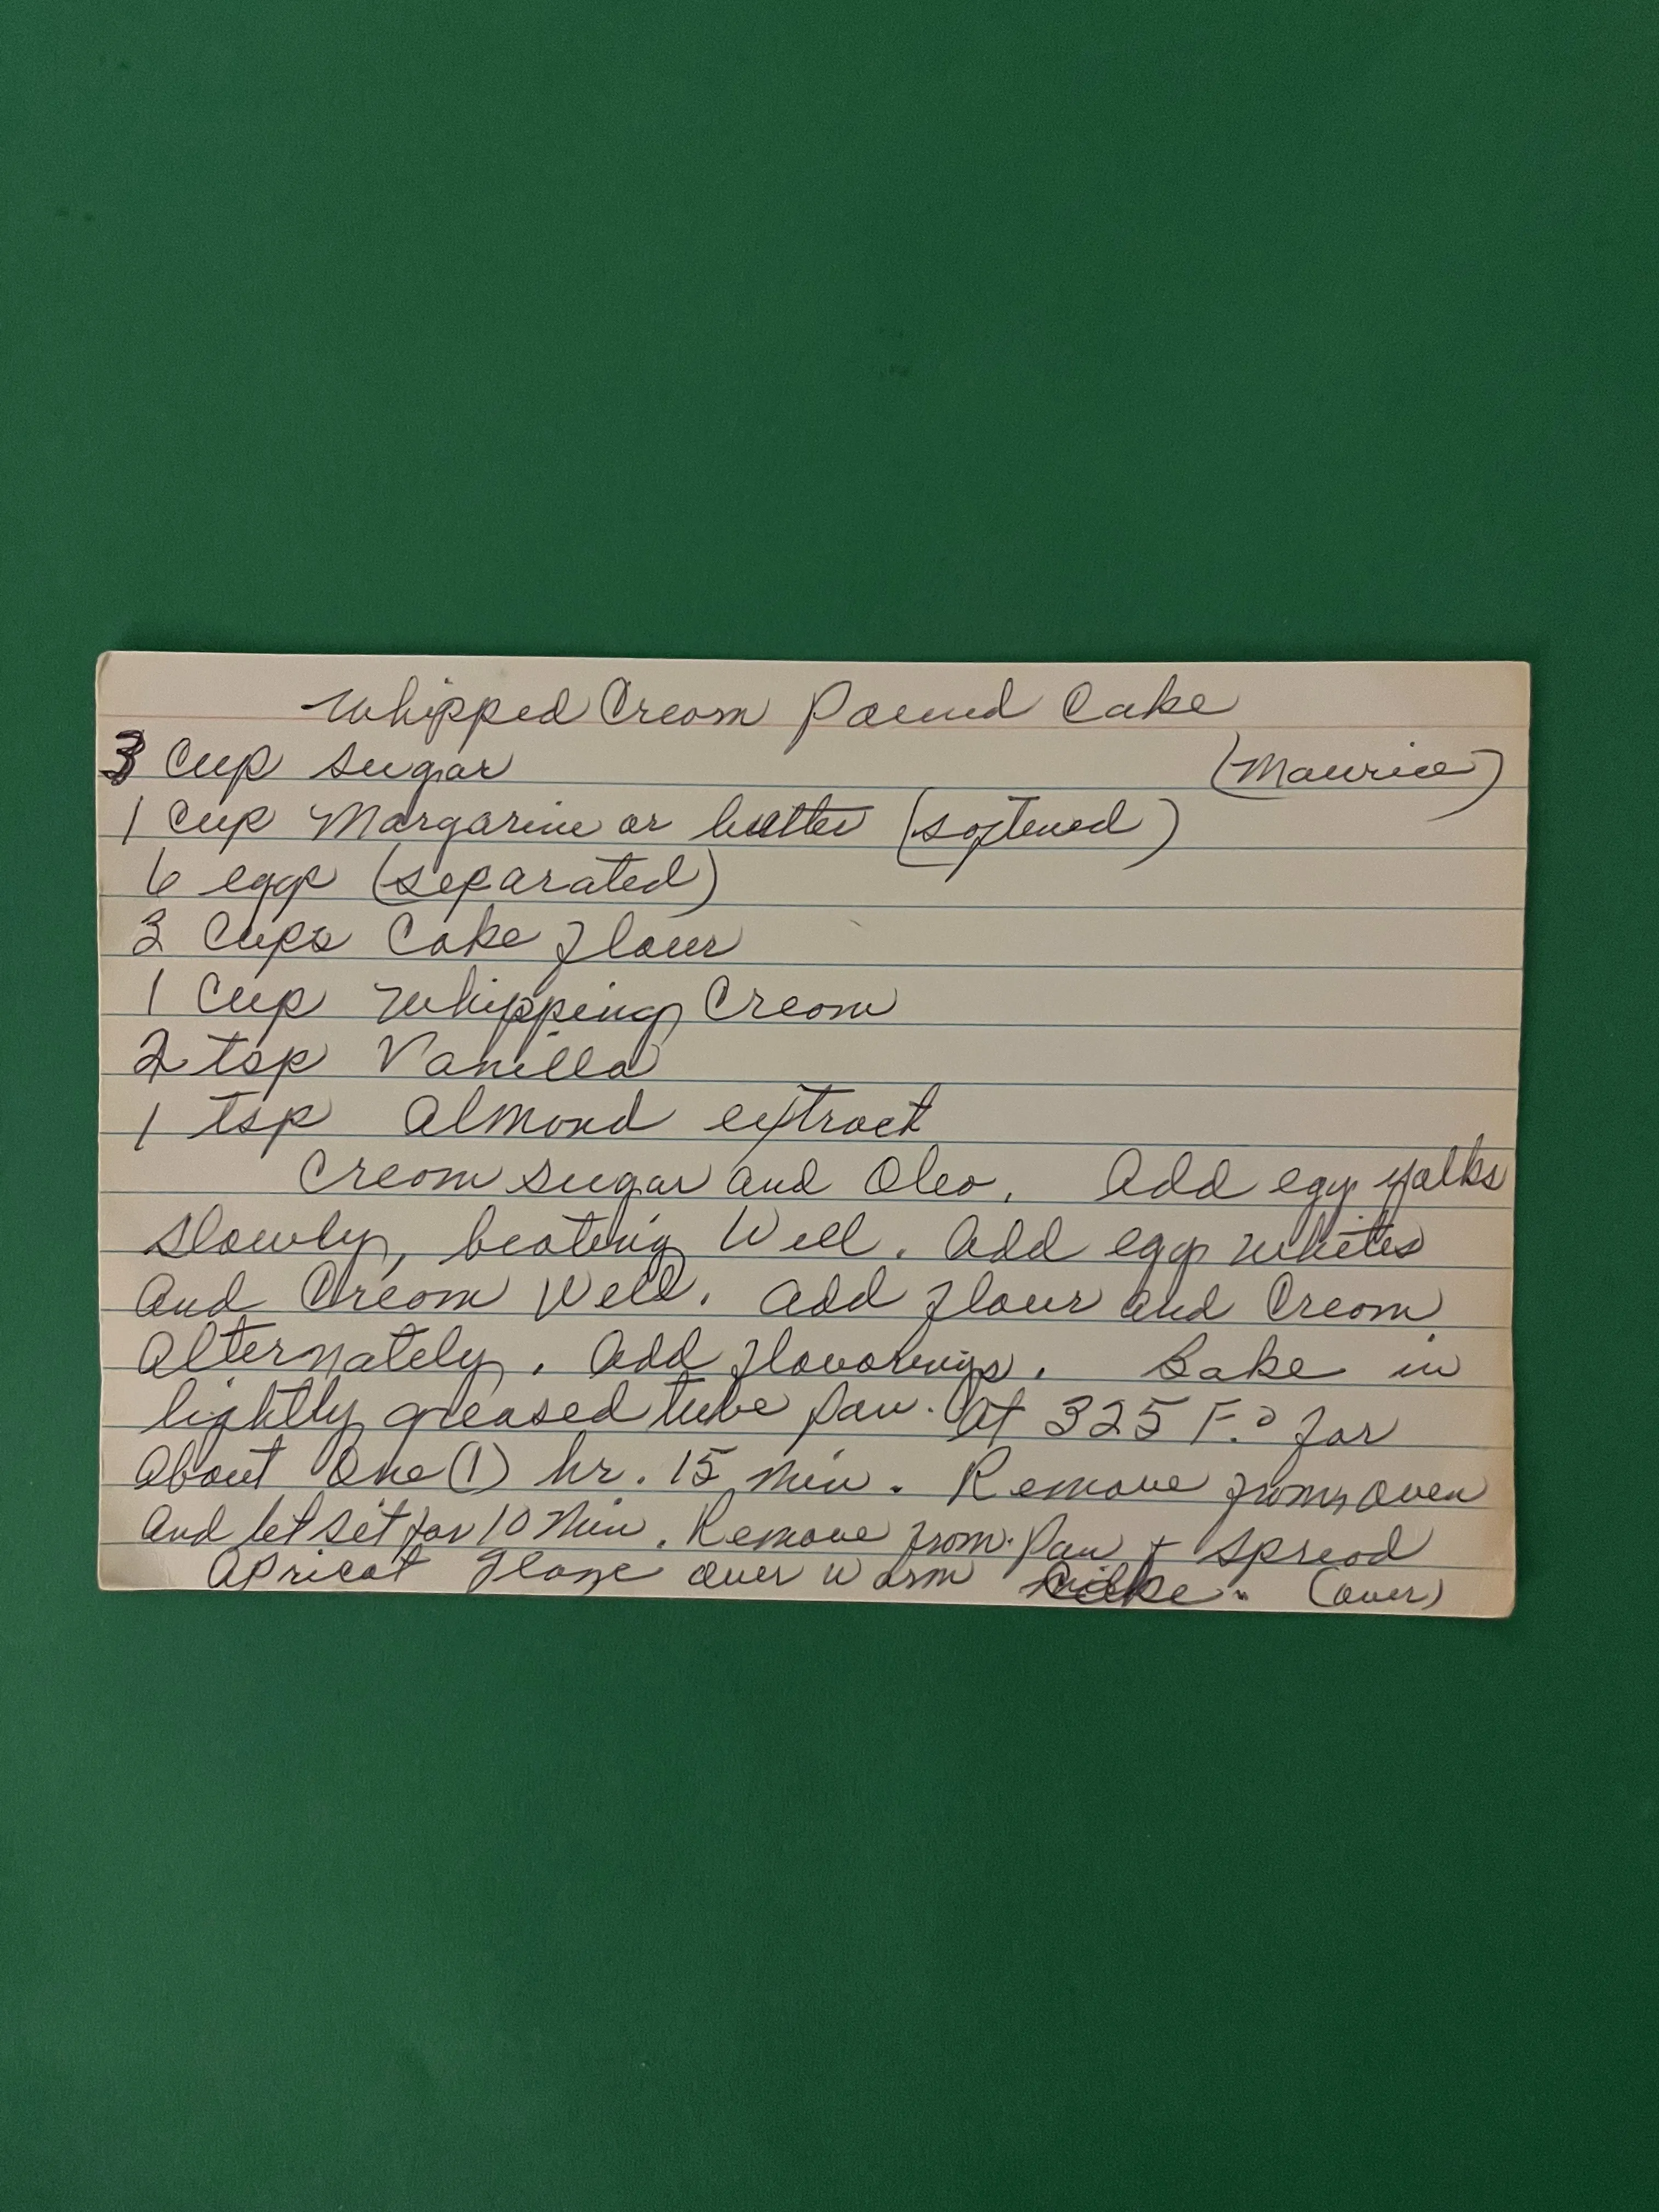 Whipped Cream Pound Cake
3 Cup sugar (Maurice)
1 Cup Margarine or butter (softened)
6 eggs (separated)
3 Cups Cake flour
1 Cup Whipping Cream
2 tsp Vanilla
1 tsp Almond extract
Cream sugar and Oleo. Add egg yolks
slowly, beating Well. Add egg whites
And Cream Well. Add flour and Cream
Alternately. Add flavorings. Bake in
lightly greased tube pan. At 325 F.° for
About One (1) hr. 15 Min. Remove from oven
And let set for 10 Min. Remove from Pan + spread
Apricot glaze over warm cake. (over)